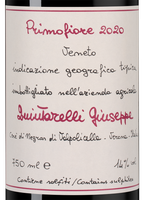 Primofiore 2020
Veneto
indicazione geografica tipica
imbottigliato nell'azienda agricola
Quintarelli Giuseppe
Cerè di Negrar di Valpolicella - Verona - Italia
750 ml ℮ 14% vol
Contiene solfiti / Contains sulphites